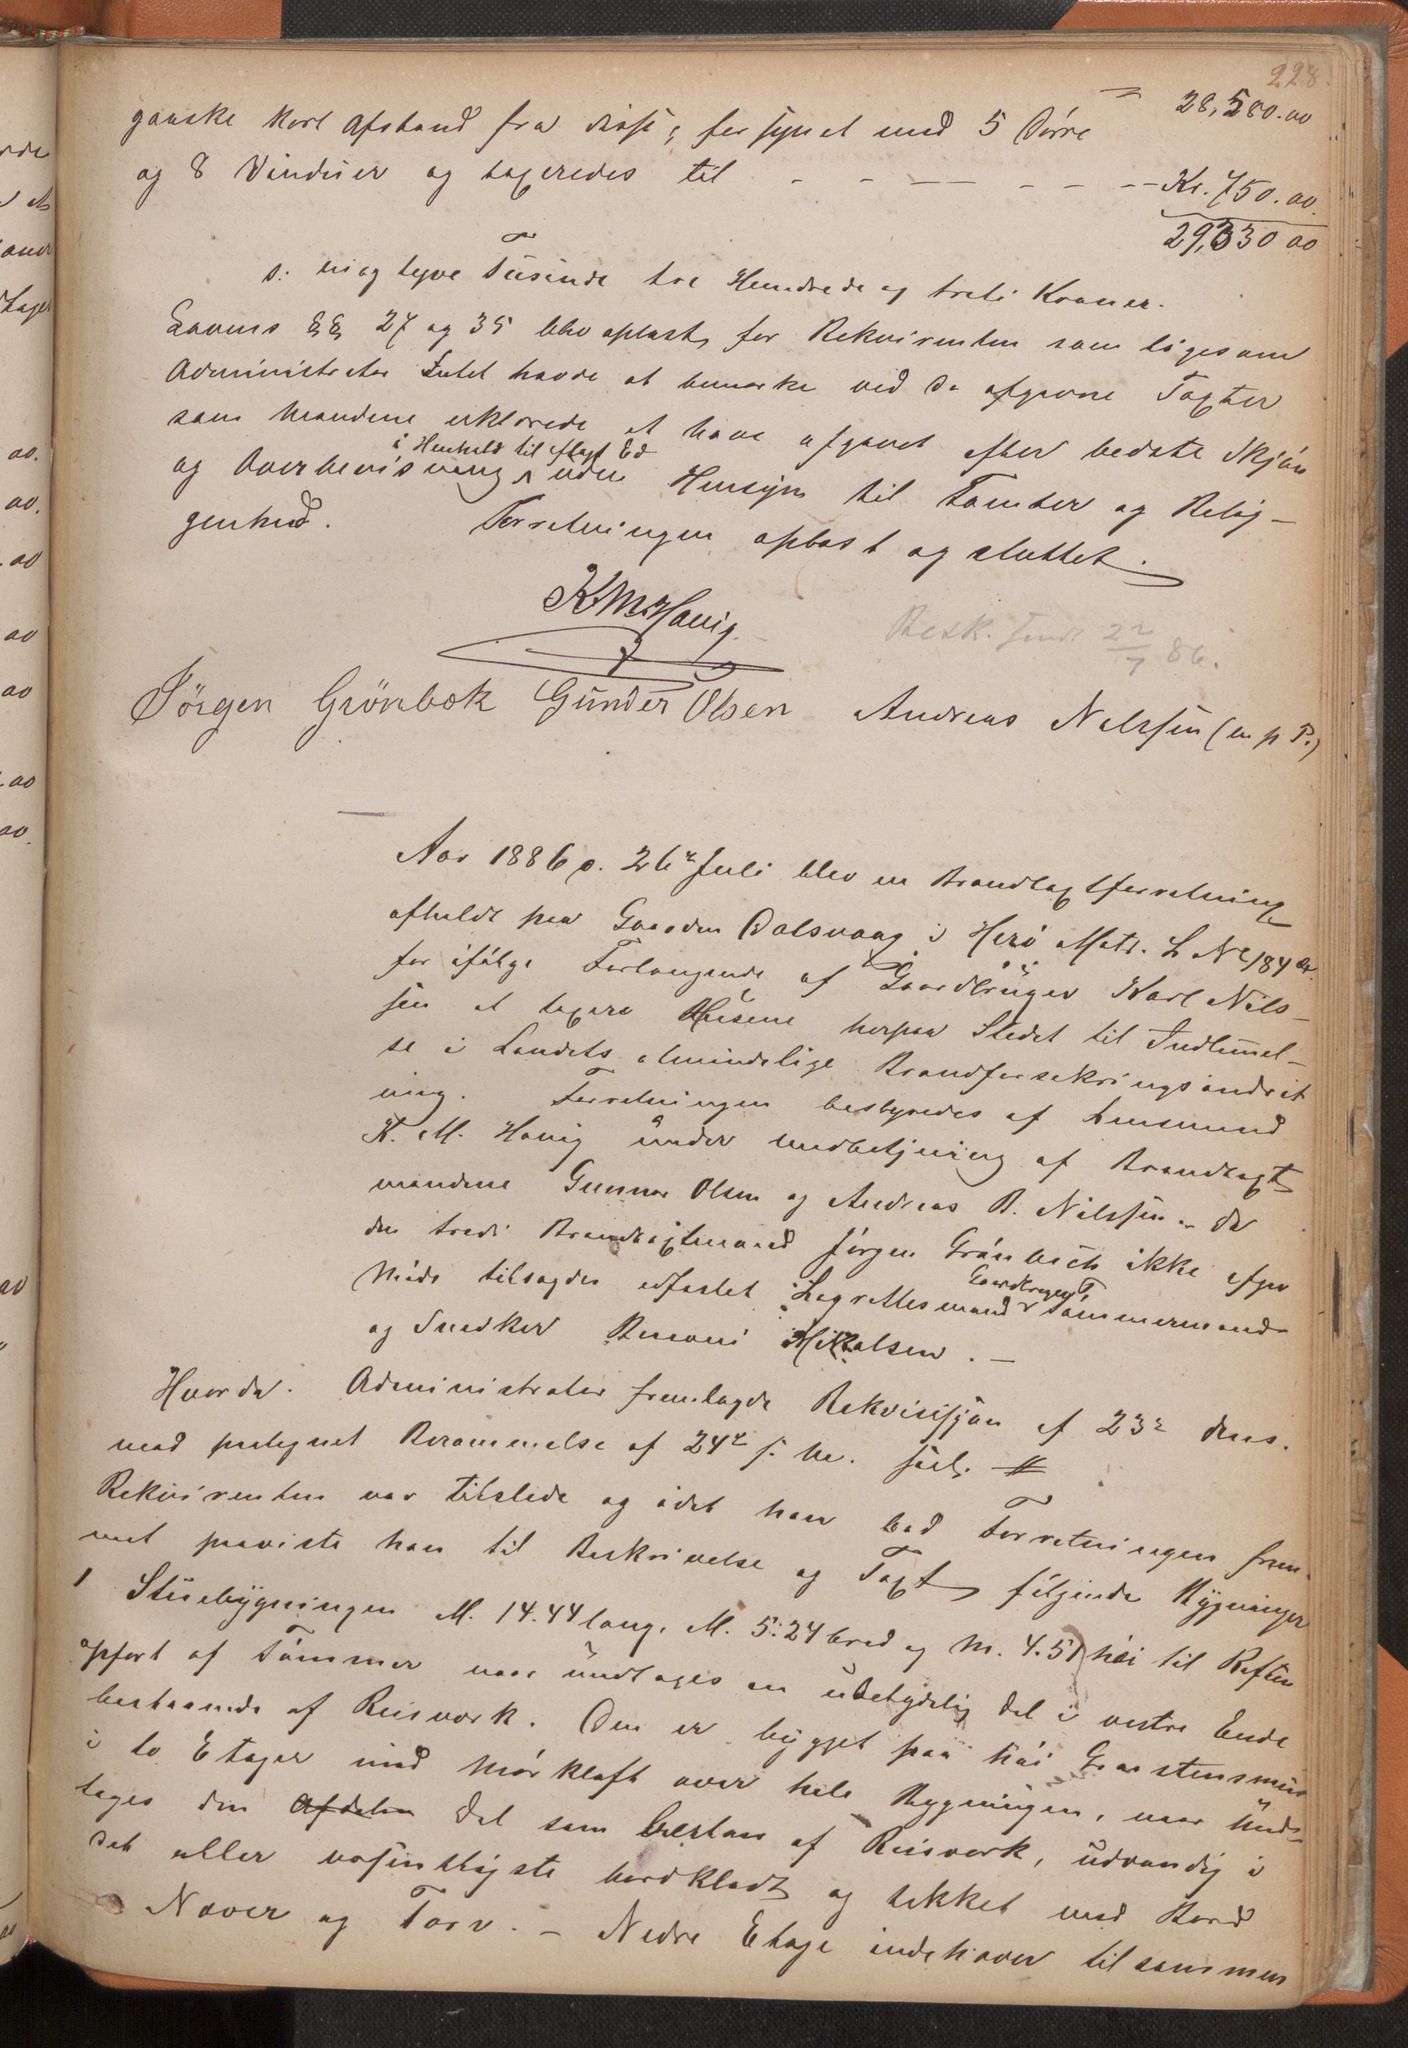 228.
28,580.00
ganske kort Afstand fra disse, forsynet med 5 Dörre
og 8 Vinduer og taxeredes til - - - - - - - Kr. 750.00
29,330 00
s. niogtyve Tusinde tre Hundrede og treti Kroner.
Lovens §§ 27 og 35 blev oplæst for Rekvirenten som ligesom
Administrator Intet havde at bemærke ved de afgivne Taxter
som Mændene erklærede at have afgivet efter bedste Skjön
og Overbevisning i Henhold til aflagt Ed uden Hensyn til Tomter og Belig-
genhed. Forretningen oplæst og sluttet.
K.M. Havig
Besk. sendt 22/7 86.
Jörgen Grönbæk Gunder Olsen Andreas Nilssen (m p P.)
Aar 1886 d. 26de Juli blev en Brandtaxtforretning
afholdt paa Gaarden Dalsvaag i Herö Matr. L No 184
for ifölge Forlangende af Gaardbruger Karl Nils-
sen at taxere Husene herpaa Stedet til Indlemel-
se i Landets almindelige Brandforsikringsindret
ning. Forretningen bestyredes af Lensmand
K. M. Havig under Medbetjening af Brandtaxt
mændene Gunnar Olsen og Andreas B. Nilssen. da
den tredi Brandtaxtmand Jörgen Grönbech ikke afgav
Möde tilsagdes edfæstet Lagrettesmand Gaardbruger Tömmermand
og Snedker Benoni Mikalsen. —
Hvorda. Administrator fremlagde Rekvisisjon af 23de dens.
med paategnet Berammelse af 24de s. M.
Rekvirenten var tilstede og idet han bad Forretningen frem-
met paaviste han til Beskrivelse og Taxt fölgende Bygninger
1 Stuebygningen M. 14.44 lang, M. 5.24 bred og M. 4.51 höi til Raften
opfört af Tömmer naar undtages en ubetydelig Del i vestre Ende
bestaaende af Reisværk. Den er bygget paa höi Graastensmur
i to Etager med Mörkloft over hele Bygningen, naar und-
tages den Afdelin Del som bestaar af Reisværk, udvændig i
det aller væsentligste bordklædt og tækket med Bord
Næver og Torv. - Nedre Etage indehaver tilsammen